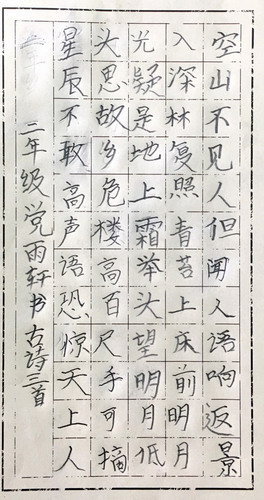 空山不见人但闻人语响返景
入深林复照青苔上床前明月
光疑是地上霜举头望明月低
头思故乡危楼高百尺手可摘
星辰不敢高声语恐惊天上人
二年级党雨轩书古诗三首